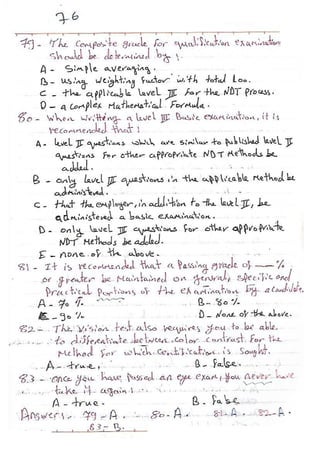 76
79 - The Composite grade for qualification examination
should be determined by:
A - Simple averaging.
B - using weighting factor with total 1.00.
C - the applicable level III for the NDT process.
D - a complex Mathematical Formula.
80 - when writting a level III Basic examination, it is
recommended that:
A - level II questions which are similar to published level II
questions for other appropriate NDT Methods be
added.
B - only level III questions in the applicable Method be
administered.
C - that the employer, in addition to the level II, be
administered a basic examination.
D - only level III questions for other appropriate
NDT Methods be added.
E - none of the above.
81 - It is recommended that a passing grade of — %
or greater be Maintained on general, specific and
Practical Portions of the examination by a candidate.
A - 70 %. B - 80 %.
C - 90 %. D - None of the above.
82 - The vision test also requires you to be able
to differentiate between color contrast for the
Method for which certification is sought.
A - true. B - False.
83 - once you have passed an eye exam, you never have
take it again:
A - true. B - False
Answers: 79 - A. 80 - A. 81 - A. 82 - A.
83 - B.